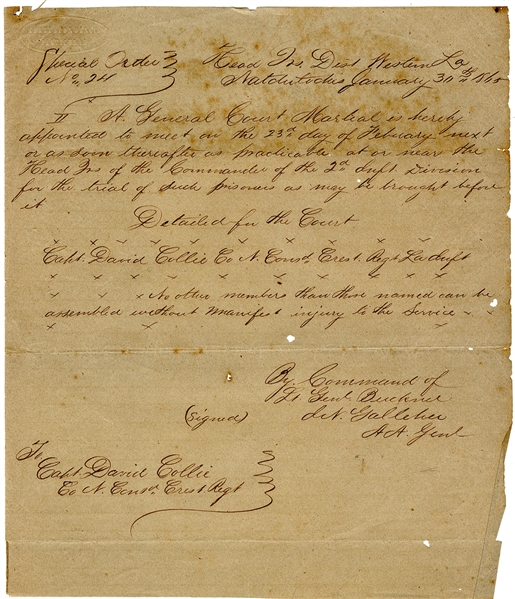 Special Order
No, 24
Head Qrs. Dist Western La
Natchitoches January 30th 1865
II A. General Court Martial is hereby
appointed to meet on the 23d day of February next
or as soon thereafter as practicable at or near the
Head Qrs of the Commander of the 2d Inft Division
for the trial of such prisoners as may be brought before
it
Detailed for the Court
x x x x x x x x x x x
Capt. David Collie Co N. Consd. Crest. Regt La Inft
x x x x x x x x x x
x x x No other members than those named can be
assembled without manifest injury to the Service x x
x x x x x x x
By. Command of
Lt Genl Buckner
(Signed)
A.A. Genl
To
Capt. David Collie
Co N. Consd. Crest Regt